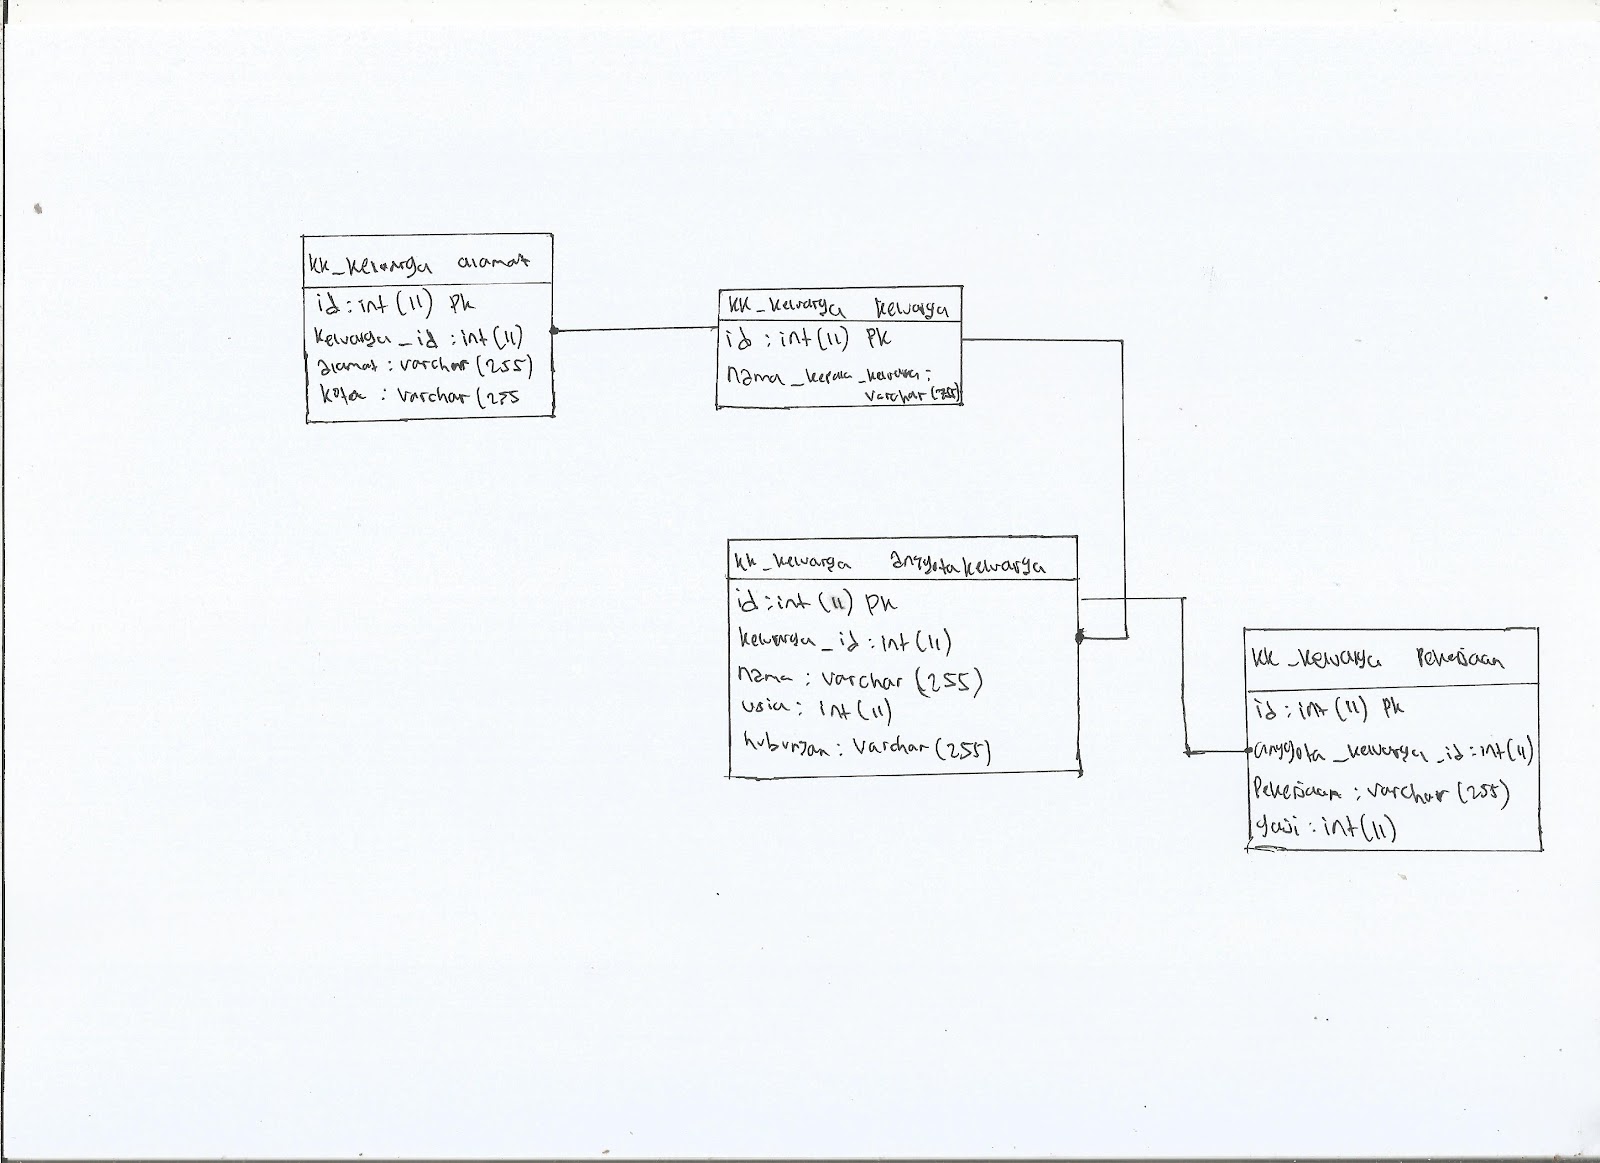 kk_keluarga alamat
id : int (11) Pk
keluarga_id : int (11)
alamat : varchar (255)
kota : varchar (255
kk_keluarga keluarga
id : int (11) Pk
nama_kepala_keluarga :
varchar (255)
kk_keluarga anggotakeluarga
id : int (11) Pk
keluarga_id : int (11)
nama : varchar (255)
usia : int (11)
hubungan : varchar (255)
kk_keluarga Pekerjaan
id : int (11) Pk
anggota_keluarga_id : int (11)
Pekerjaan : varchar (255)
gaji : int (11)